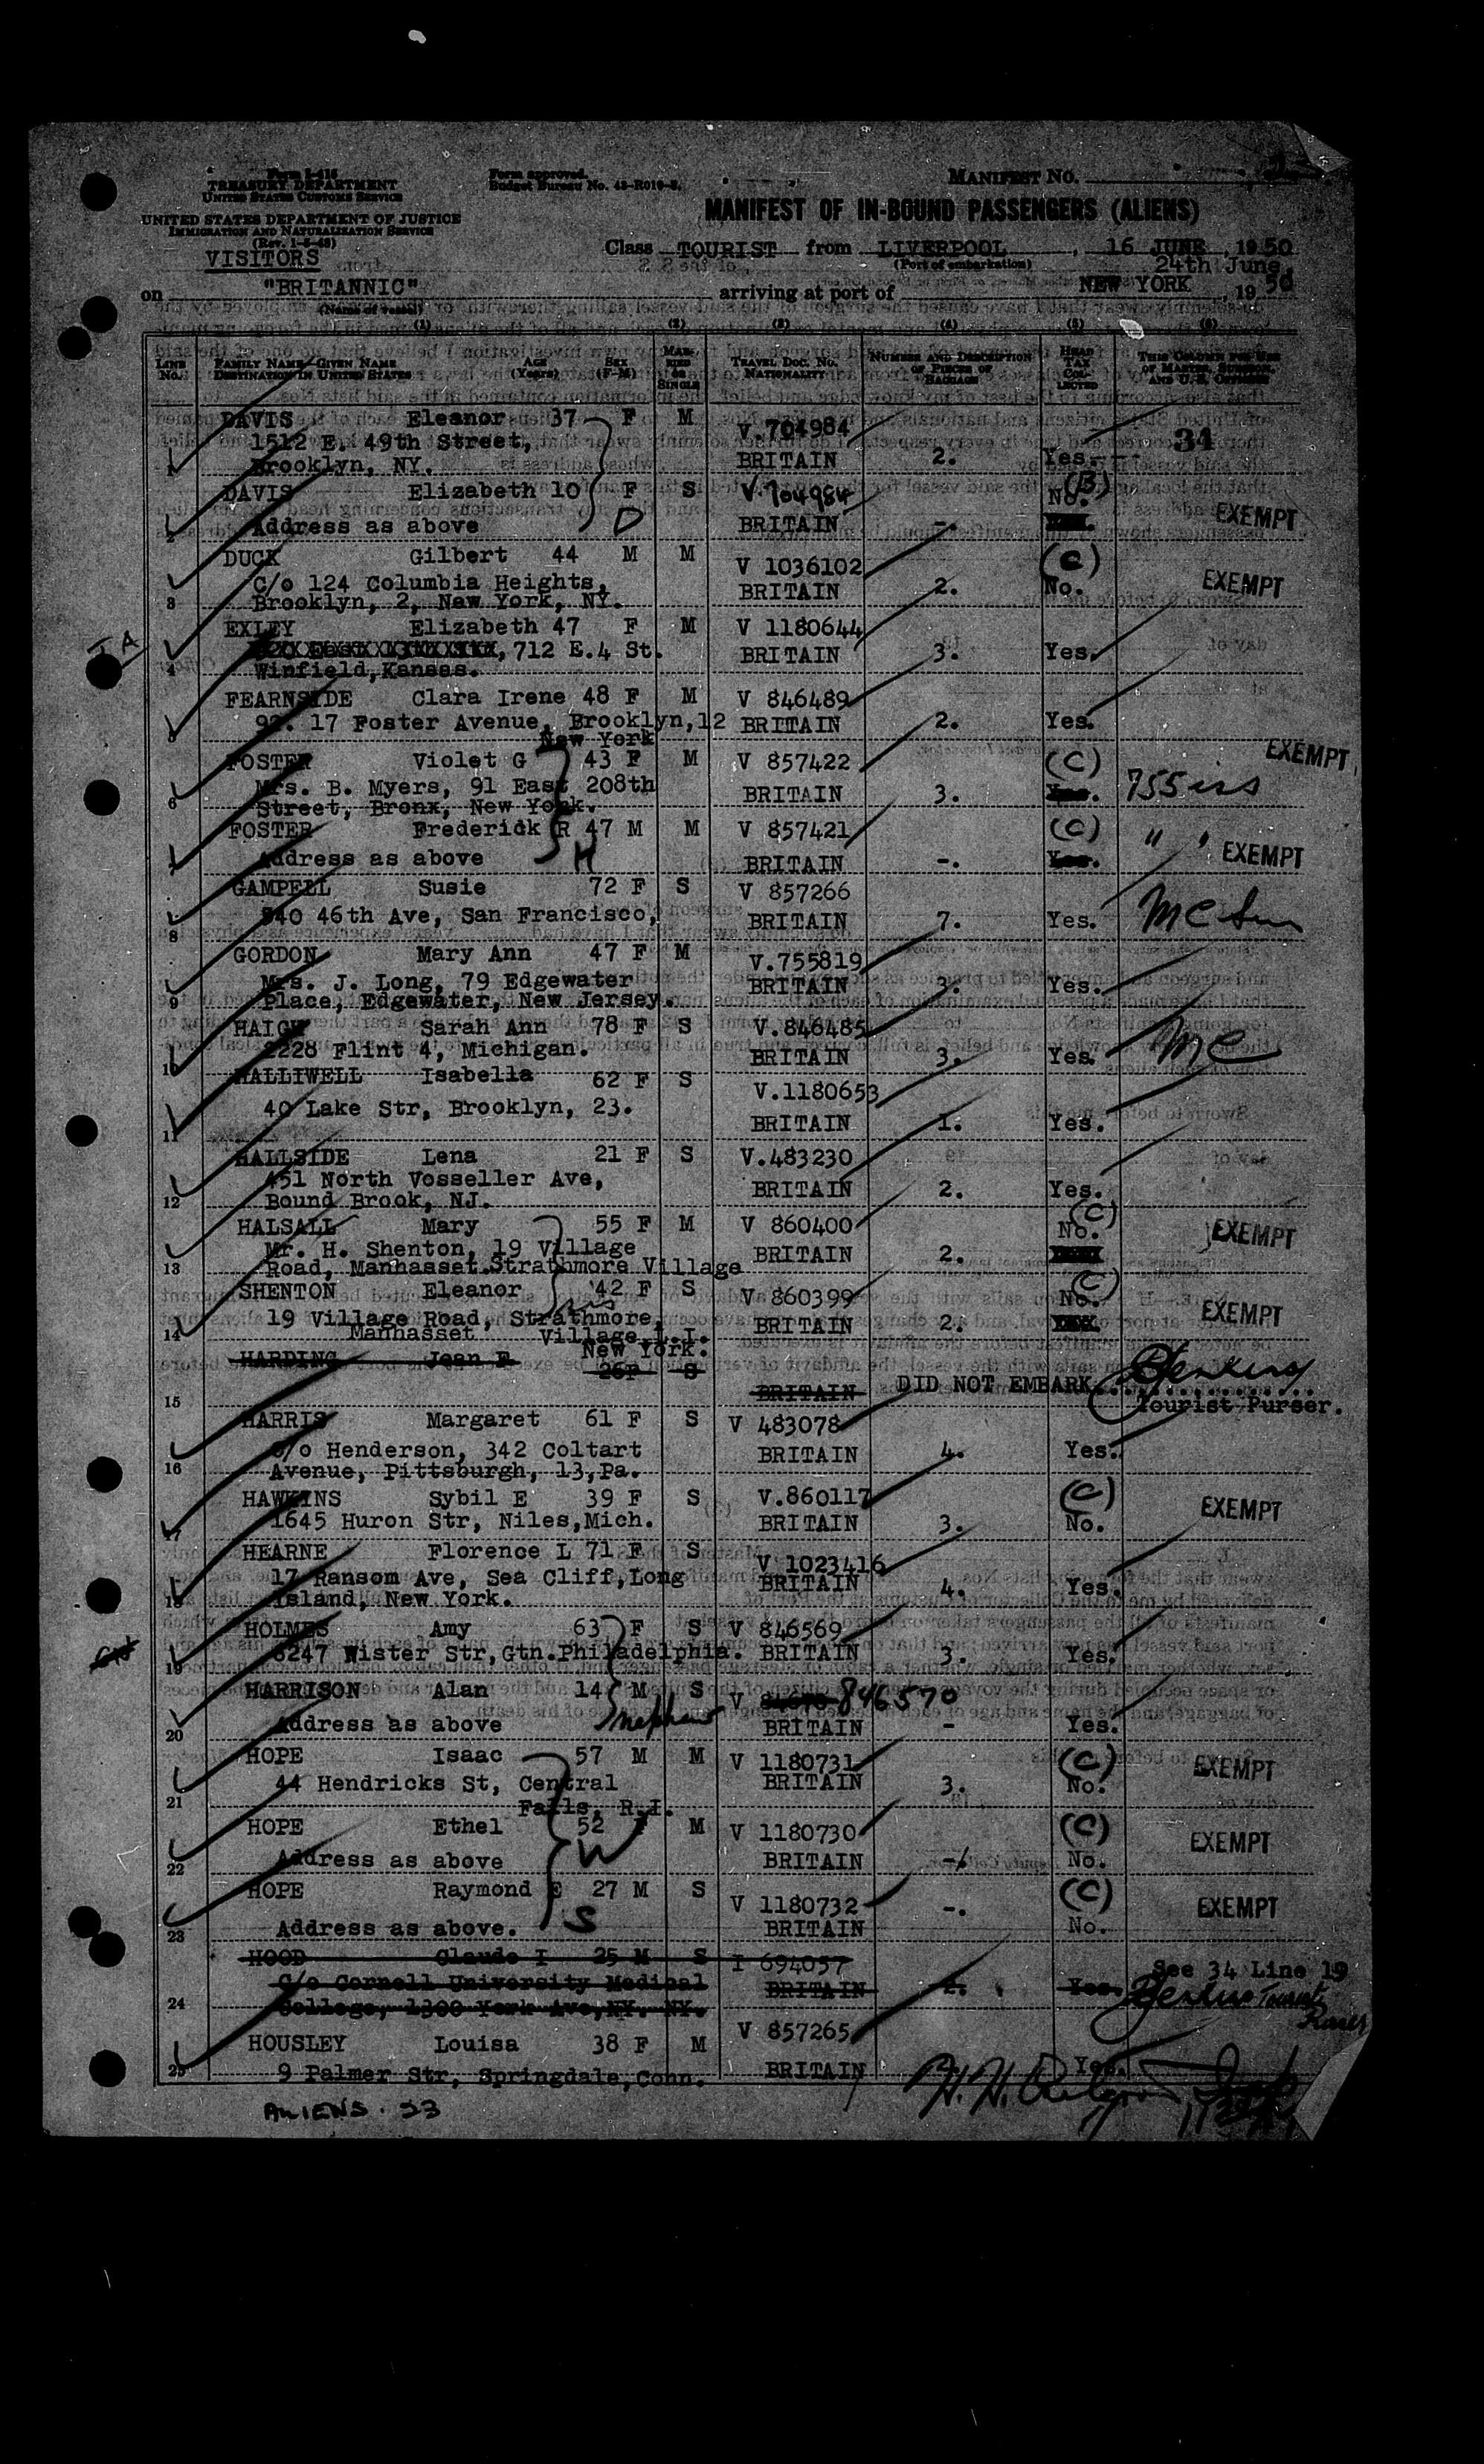 Form I-418
TREASURY DEPARTMENT
UNITED STATES CUSTOMS SERVICE
UNITED STATES DEPARTMENT OF JUSTICE
IMMIGRATION AND NATURALIZATION SERVICE
(Rev. 1-5-48)
VISITORS
Form approved.
Budget Bureau No. 43-R019-
MANIFEST NO.
MANIFEST OF IN-BOUND PASSENGERS (ALIENS)
Class TOURIST from LIVERPOOL, 16 JUNE, 1950
(Port of embarkation)
24th June,
on "BRITANNIC" arriving at port of NEW YORK, 1950
(Name of vessel)
(1) (2) (3) (4) (5) (6)
LINE No. FAMILY NAME—GIVEN NAME DESTINATION IN UNITED STATES AGE (Years) SEX (F-M) MARRIED OR SINGLE TRAVEL DOC. NO. NATIONALITY NUMBER AND DESCRIPTION OF PIECES OF BAGGAGE HEAD TAX COLLECTED THIS COLUMN FOR USE OF MASTER, SURGEON, AND U.S. OFFICERS
34
DAVIS Eleanor 37 F M V 704984
1512 E. 49th Street,
1 Brooklyn, NY. BRITAIN 2. Yes.
DAVIS Elizabeth 10 F S V.704984 (B) No.
2 Address as above D BRITAIN -. EXEMPT
DUCK Gilbert 44 M M V 1036102 (C)
C/o 124 Columbia Heights,
3 Brooklyn, 2, New York, NY. BRITAIN 2. No. EXEMPT
EXLEY Elizabeth 47 F M V 1180644
712 E.4 St. BRITAIN 3. Yes.
4 Winfield, Kansas.
FEARNSIDE Clara Irene 48 F M V 846489
92. 17 Foster Avenue, Brooklyn,12 BRITAIN 2. Yes.
5 New York
FOSTER Violet G 43 F M V 857422 (C) EXEMPT
Mrs. B. Myers, 91 East 208th BRITAIN 3. Yes. 755 iss
6 Street, Bronx, New York.
FOSTER Frederick R 47 M M V 857421 (C) " "
7 Address as above H BRITAIN -. Yes. EXEMPT
GAMPELL Susie 72 F S V 857266
8 840 46th Ave, San Francisco, BRITAIN 7. Yes.
GORDON Mary Ann 47 F M V.755819
Mrs. J. Long, 79 Edgewater BRITAIN 3. Yes.
9 Place, Edgewater, New Jersey.
HAIGH Sarah Ann 78 F S V.846485
10 2228 Flint 4, Michigan. BRITAIN 3. Yes. MC
HALLIWELL Isabella 62 F S V.1180653
11 40 Lake Str, Brooklyn, 23. BRITAIN 1. Yes.
HALLSIDE Lena 21 F S V.483230
451 North Vosseller Ave,
12 Bound Brook, NJ. BRITAIN 2. Yes.
HALSALL Mary 55 F M V 860400 (C) No. EXEMPT
Mr. H. Shenton, 19 Village BRITAIN 2.
13 Road, Manhasset.Strathmore Village
SHENTON Eleanor 42 F S V 860399 (C) No. EXEMPT
19 Village Road, Strathmore, sis BRITAIN 2.
14 Manhasset Village, L.I.
New York.
HARDING Jean E 26F S
15 BRITAIN DID NOT EMBARK
Tourist Purser.
HARRIS Margaret 61 F S V 483078
C/o Henderson, 342 Coltart BRITAIN 4. Yes.
16 Avenue, Pittsburgh, 13,Pa.
HAWKINS Sybil E 39 F S V.860117 (C) EXEMPT
17 1645 Huron Str, Niles,Mich. BRITAIN 3. No.
HEARNE Florence L 71 F S V 1023416
17 Ransom Ave, Sea Cliff,Long BRITAIN 4. Yes.
18 Island, New York.
HOLMES Amy 63 F S V 846569
19 6247 Wister Str,Gtn.Philadelphia. BRITAIN 3. Yes.
HARRISON Alan 14 M S V 846570
20 Address as above nephew BRITAIN - Yes.
HOPE Isaac 57 M M V 1180731 (C) EXEMPT
44 Hendricks St, Central BRITAIN 3. No.
21 Falls, R.I.
HOPE Ethel 52 M V 1180730 (C) EXEMPT
22 Address as above W BRITAIN -. No.
HOPE Raymond E 27 M S V 1180732 (C) EXEMPT
23 Address as above. S BRITAIN -. No.
HOOD Claude I 25 M S I 694057 See 34 Line 19
C/o Cornell University Medical BRITAIN Yes.
24 College, 1300 York Ave,NY. NY.
HOUSLEY Louisa 38 F M V 857265
25 9 Palmer Str, Springdale,Conn. BRITAIN Yes.
ALIENS. 23